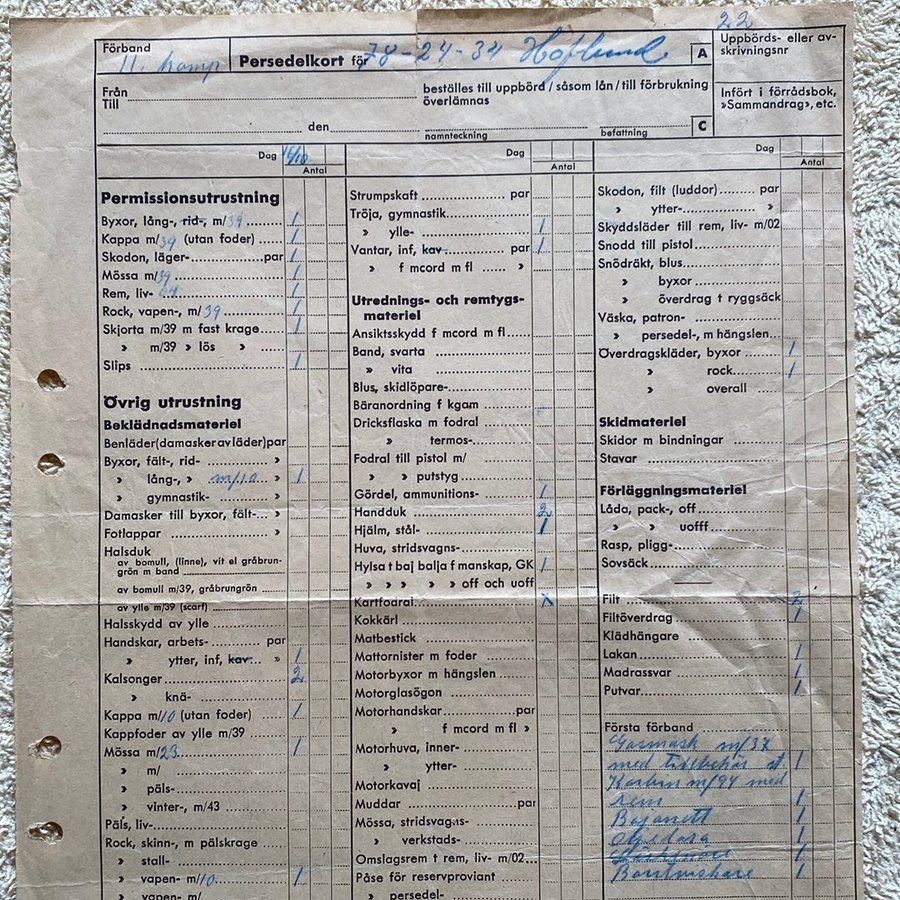 22
Förband
11. komp
Persedelkort för 78-24-34 Höglund
A
Uppbörds- eller avskrivningsnr
Från
Till
beställes till uppbörd/såsom lån/till förbrukning
överlämnas
Infört i förrådsbok,
»Sammandrag», etc.
den
namnteckning
befattning
C
Dag 16/10
Antal
Permissionsutrustning
Byxor, lång-, rid-, m/39 1
Kappa m/39 (utan foder) 1
Skodon, läger- par 1
Mössa m/39 1
Rem, liv- 1
Rock, vapen-, m/39 1
Skjorta m/39 m fast krage 1
» m/39 » lös »
Slips 1
Övrig utrustning
Beklädnadsmateriel
Benläder(damasker av läder)par
Byxor, fält-, rid- »
» lång-, » m/10 » 1
» gymnastik- »
Damasker till byxor, fält- »
Fotlappar »
Halsduk
av bomull, (linne), vit el gråbrun-
grön m band
av bomull m/39, gråbrungrön
av ylle m/39 (scarf)
Halsskydd av ylle
Handskar, arbets- par
» ytter, inf, kav. » 1
Kalsonger 2
» knä-
Kappa m/10 (utan foder) 1
Kappfoder av ylle m/39
Mössa m/23 1
» m/
» päls-
» vinter-, m/43
Päls, liv-
Rock, skinn-, m pälskrage
» stall-
» vapen- m/10 1
» vapen- m/
Dag
Antal
Strumpskaft par
Tröja, gymnastik
» ylle- 1
Vantar, inf, kav. par 1
» f mcord m fl »
Utrednings- och remtygs-
materiel
Ansiktsskydd f mcord m fl
Band, svarta
» vita
Blus, skidlöpare-
Bäranordning f kgam
Dricksflaska m fodral
» termos-
Fodral till pistol m/
» » putstyg
Gördel, ammunitions- 1
Handduk 2
Hjälm, stål- 1
Huva, stridsvagns-
Hylsa t baj balja f manskap, GK 1
» » » » off och uoff
Kartfodral x
Kokkärl
Matbestick
Mattornister m foder
Motorbyxor m hängslen
Motorglasögon
Motorhandskar par
» f mcord m fl »
Motorhuva, inner-
» ytter-
Motorkavaj
Muddar par
Mössa, stridsvagns-
» verkstads-
Omslagsrem t rem, liv- m/02
Påse för reservproviant
» persedel-
Dag
Antal
Skodon, filt (luddor) par
» ytter- »
Skyddsläder till rem, liv- m/02
Snodd till pistol
Snödräkt, blus
» byxor
» överdrag t ryggsäck
Väska, patron-
» persedel-, m hängslen
Överdragskläder, byxor 1
» rock 1
» overall
Skidmateriel
Skidor m bindningar
Stavar
Förläggningsmateriel
Låda, pack-, off
» » uofff
Rasp, pligg-
Sovsäck
Filt 2
Filtöverdrag 1
Klädhängare
Lakan 1
Madrassvar 1
Putvar 1
Första förband
Gasmask m/37
med tillbehör 1
Karbin m/94 med
rem 1
Bajonett 1
Oljedosa 1
1